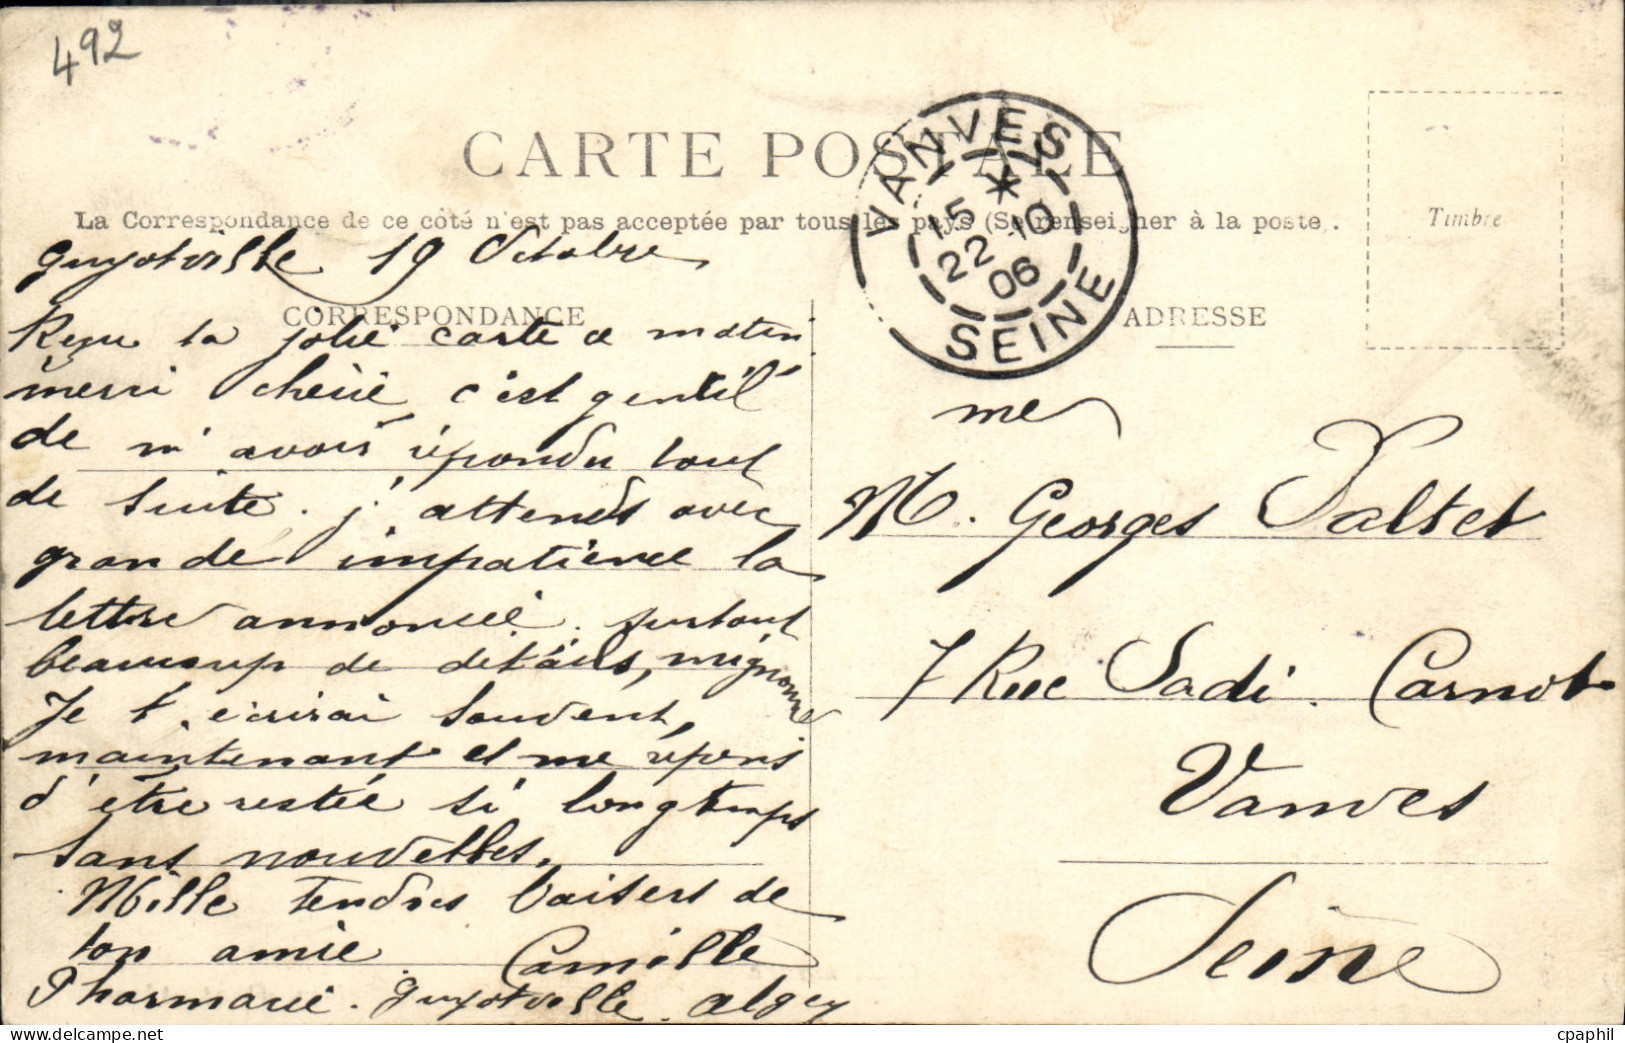 492
CARTE POSTALE
La Correspondance de ce côté n'est pas acceptée par tous les pays (Se renseigner à la poste).
VANVES
15 *
22 -10
06
SEINE
Timbre
Guyotville 19 Octobre
CORRESPONDANCE
ADRESSE
Reçu ta jolie carte ce matin
merci chérie c'est gentil
de m'avoir répondu tout
de suite. j'attends avec
grande impatience la
lettre annoncée. surtout
beaucoup de détails, mignonne
Je t'écrirai souvent,
maintenant et me repens
d'être restée si longtemps
sans nouvelles.
Mille tendres baisers de
ton amie Camille
Pharmacie. Guyotville. Alger
Me
M. Georges Paltet
7 Rue Sadi. Carnot
Vanves
Seine
cpaphil